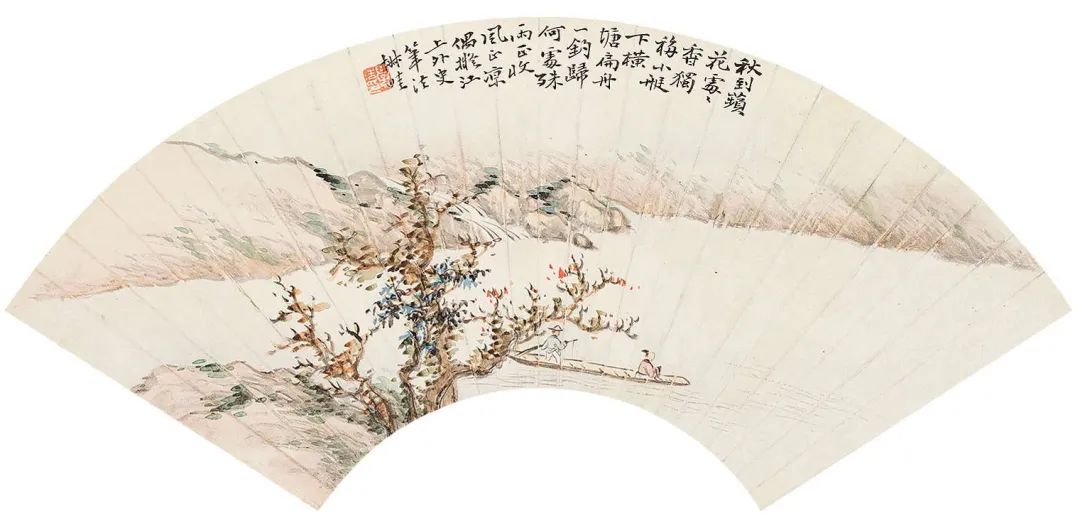 秋到蘋
花處〻
香獨
移小艇
下橫
塘扁舟
一釣歸
何處疎
雨正收
風正凉
偶擬江
上外史
筆法